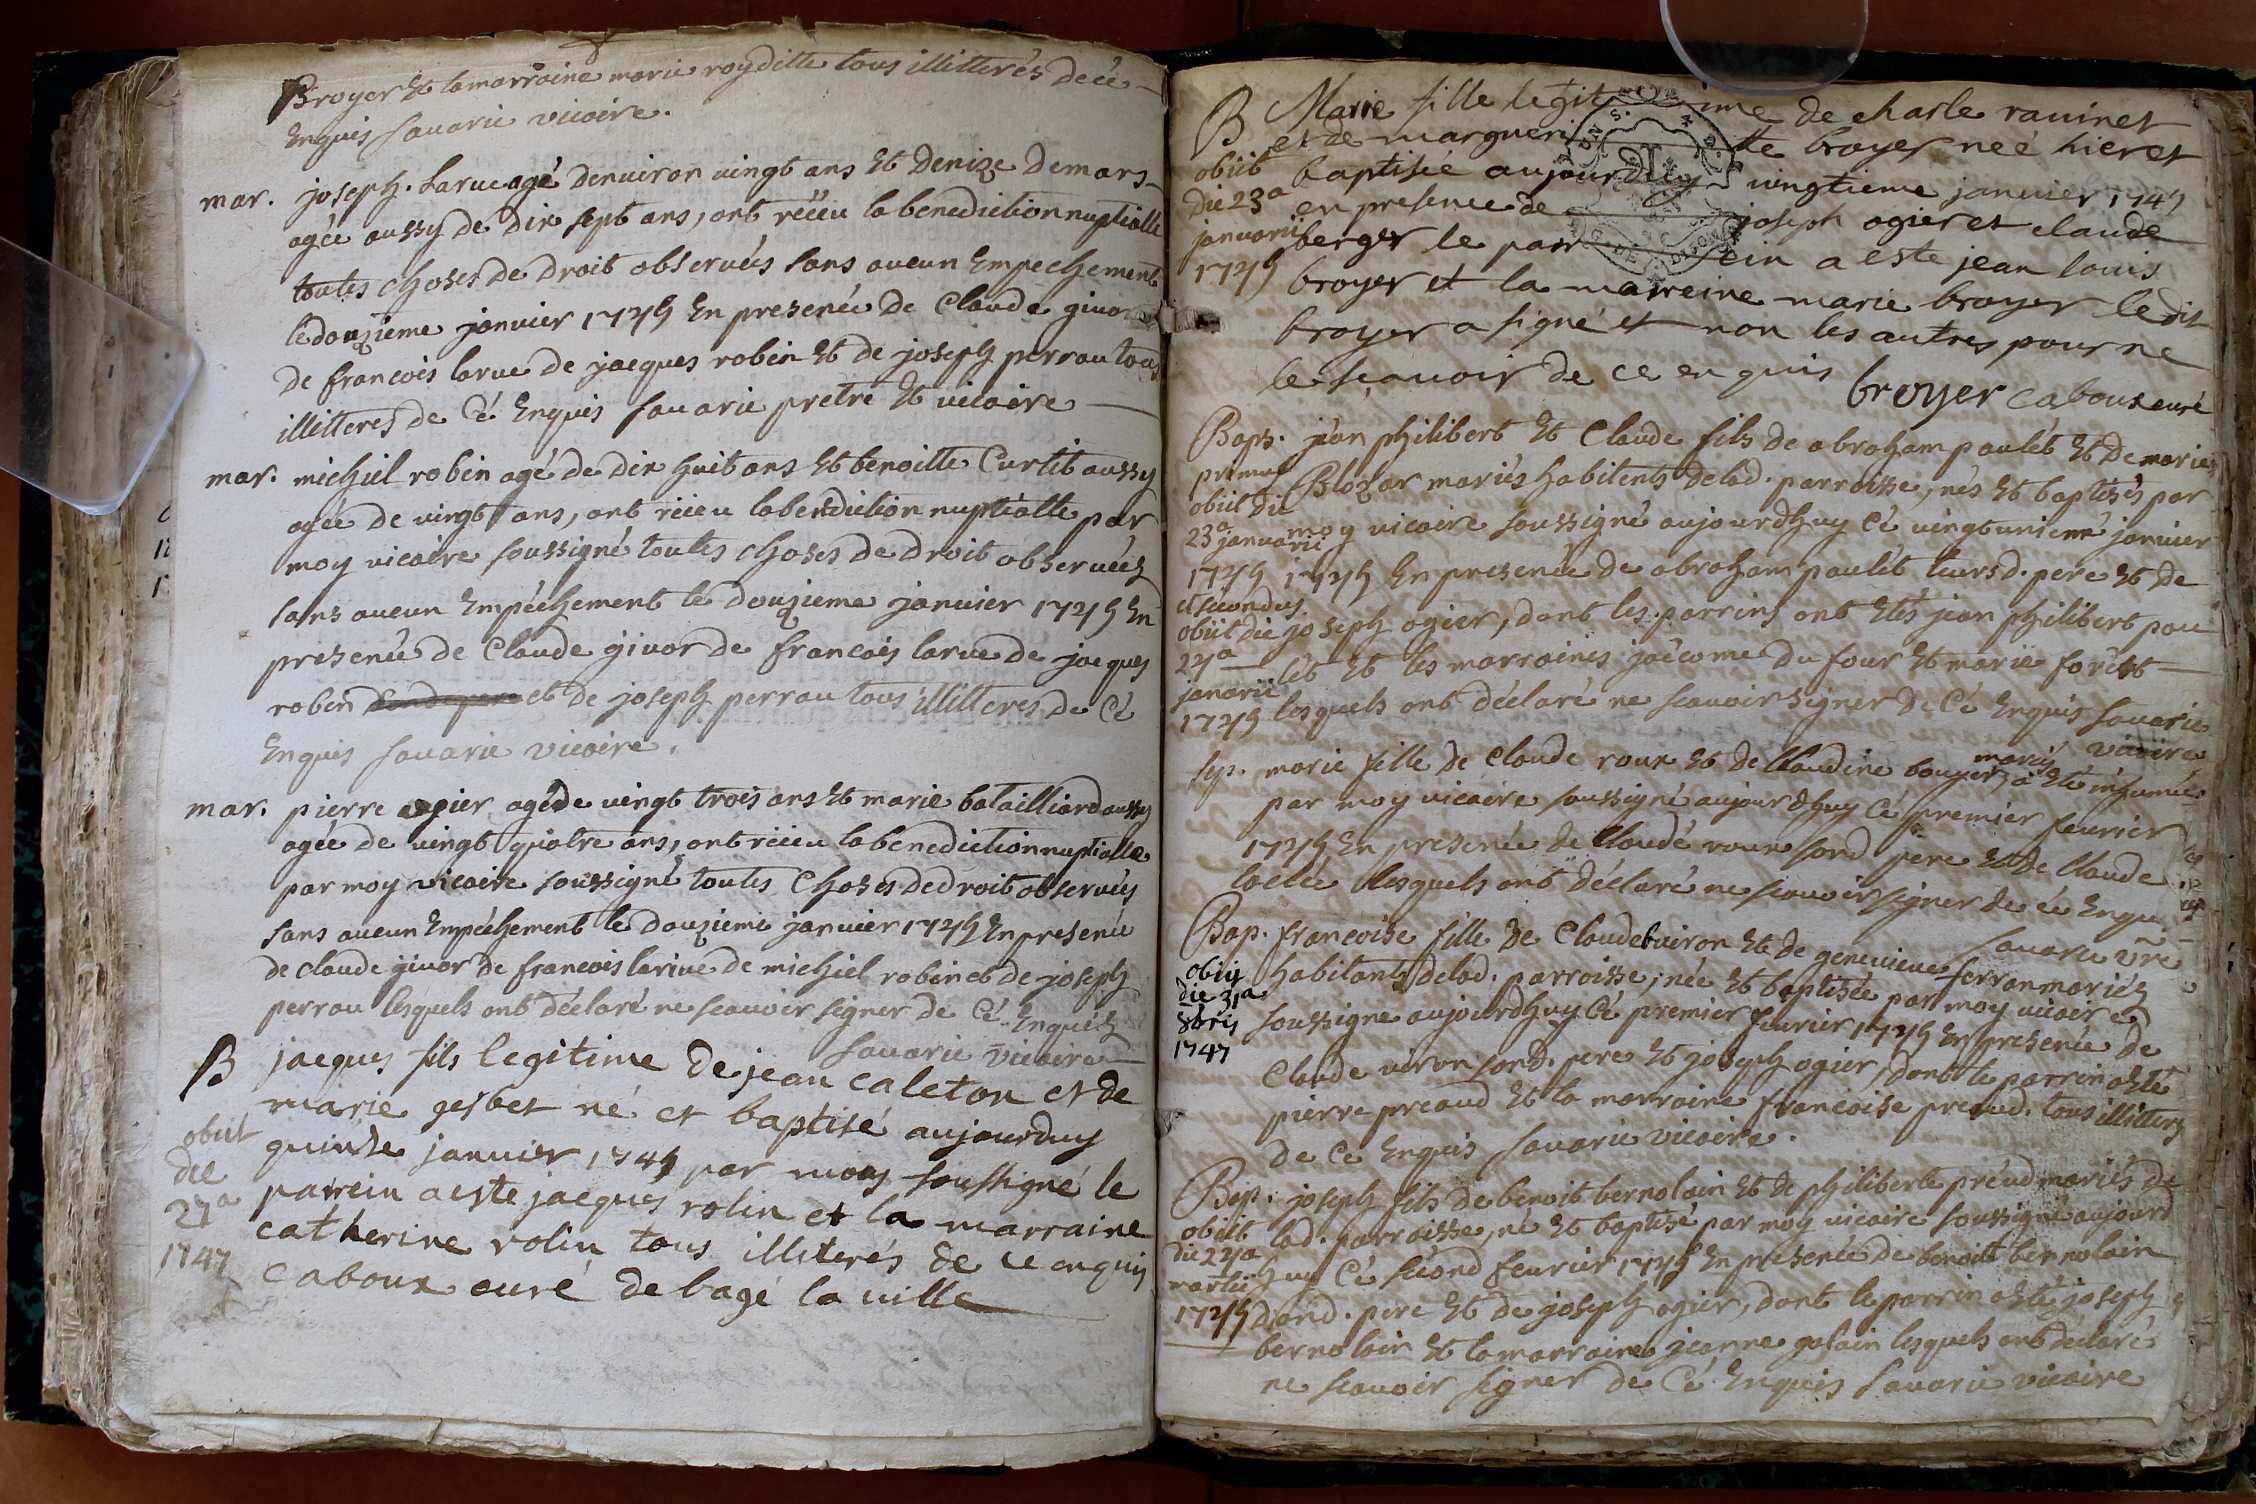 Broyer Et la marraine marie roy ditte tous illitterés de cé
Enquis Sauarie vicaire.
mar. joseph. Larue agé denviron vingt ans Et Denize Demars
agée aussy de Dix sept ans, ont réceu la benediction nuptialle
toutes choses de Droit observées sans aucun Empechement
le douzieme janvier 1745 En presence de Claude givor
de francois larue de jacques robin Et de joseph perrau tous
illitteres de Cé Enquis Sauarie pretre Et vicaire
mar. michiel robin agé de Dix huit ans Et benoitte Curtit aussy
agée de vingt ans, ont réceu la benediction nuptialle par
moy vicaire soussigné toutes choses de Droit observées
sans aucun Empéchement le Douzieme janvier 1745 En
presence de Claude givor de francois larue de jacques
robin et de joseph perrau tous illitteres de Cé
Enquis Sauarie vicaire.
mar. pierre ogier agé de vingt trois ans Et marie batailliard aussy
agée de vingt quatre ans, ont réceu la benediction nuptialle
par moy vicaire soussigné toutes Choses de Droit observées
sans aucun Empéchement le Douzieme janvier 1745 En presence
de claude givor de francois larue de michiel robin et de joseph
perrau lesquels ont déclaré ne scauoir signer de Cé Enquis
Sauarie vicaire
B jacques fils legitime de jean caleton et de
marie gesbet né et baptisé aujourduy
obiit die 27a 1747
quinze janvier 1745 par nous soussigné le
parrein a este jacques rolin et la marraine
catherine rolin tous illiterés de ce enquis
caboux curé de bagé la ville
B Marie fille legitime de charle rauinet
et de marguerite broyer neé hier et
obiit die 23a januarii 1745
baptisée aujourduy vingtieme janvier 1745
en presence de joseph ogier et claude
berger le parrein a este jean louis
broyer et la marreine marie broyer ledit
broyer a signé et non les autres pour ne
le sçauoir de ce enquis broyer caboux curé
Bapt. jean philibert Et Claude fils de abraham paulét Et de marie
primus obiit die 23a januarii 1745 et secundus obiit die 24a janarii 1745
Blozar mariés habitents de lad. parroisse, nés Et baptisés par
moy vicaire soussigné aujourdhuy Cé vingtunieme janvier
1745 En presence de abraham paulét leursd. pere Et de
joseph ogier, dont les parrins ont Etés jean philibert pau
lét Et les marraines jacome Dufour Et marie forêst
lesquels ont déclaré ne scauoir signer de Cé Enquis Sauarie
vicaire
Sep. marie fille de Claude roux Et de Claudine bouyer mariés a Eté inhumée
par moy vicaire soussigné aujourdhuy Cé premier feurier
1745 En presence de Claude roux sond pere Et de Claude
lesquels ont déclaré ne scauoir signer de cé Enqui
Sauarie vre
Bap. francoise fille de Claude uiron Et de genevieue ferran mariés
obiit die 31a 8bris 1747
habitants de lad. parroisse, née Et baptisée par moy vicaire
soussigne aujourdhuy Cé premier feurier 1745 En presence de
Claude viron sond. pere Et joseph ogier, dont le parrin a esté
pierre preaud Et la marraine francoise preaud. tous illitters
de Ce Enquis Sauarie vicaire.
Bap. joseph fils de benoit bernolain Et de philiberte préud mariés de
obiit die 24a martii 1745
lad. parroisse, né Et baptisé par moy vicaire soussigné aujourd
huy Cé second feurier 1745 En presence de benoitt bernolain
sond. pere Et de joseph ogier, dont le parrin a Eté joseph
bernolain Et la marraine jeanne galain lesquels ont déclaré
ne scauoir signer de Cé Enquis Sauarie vicaire